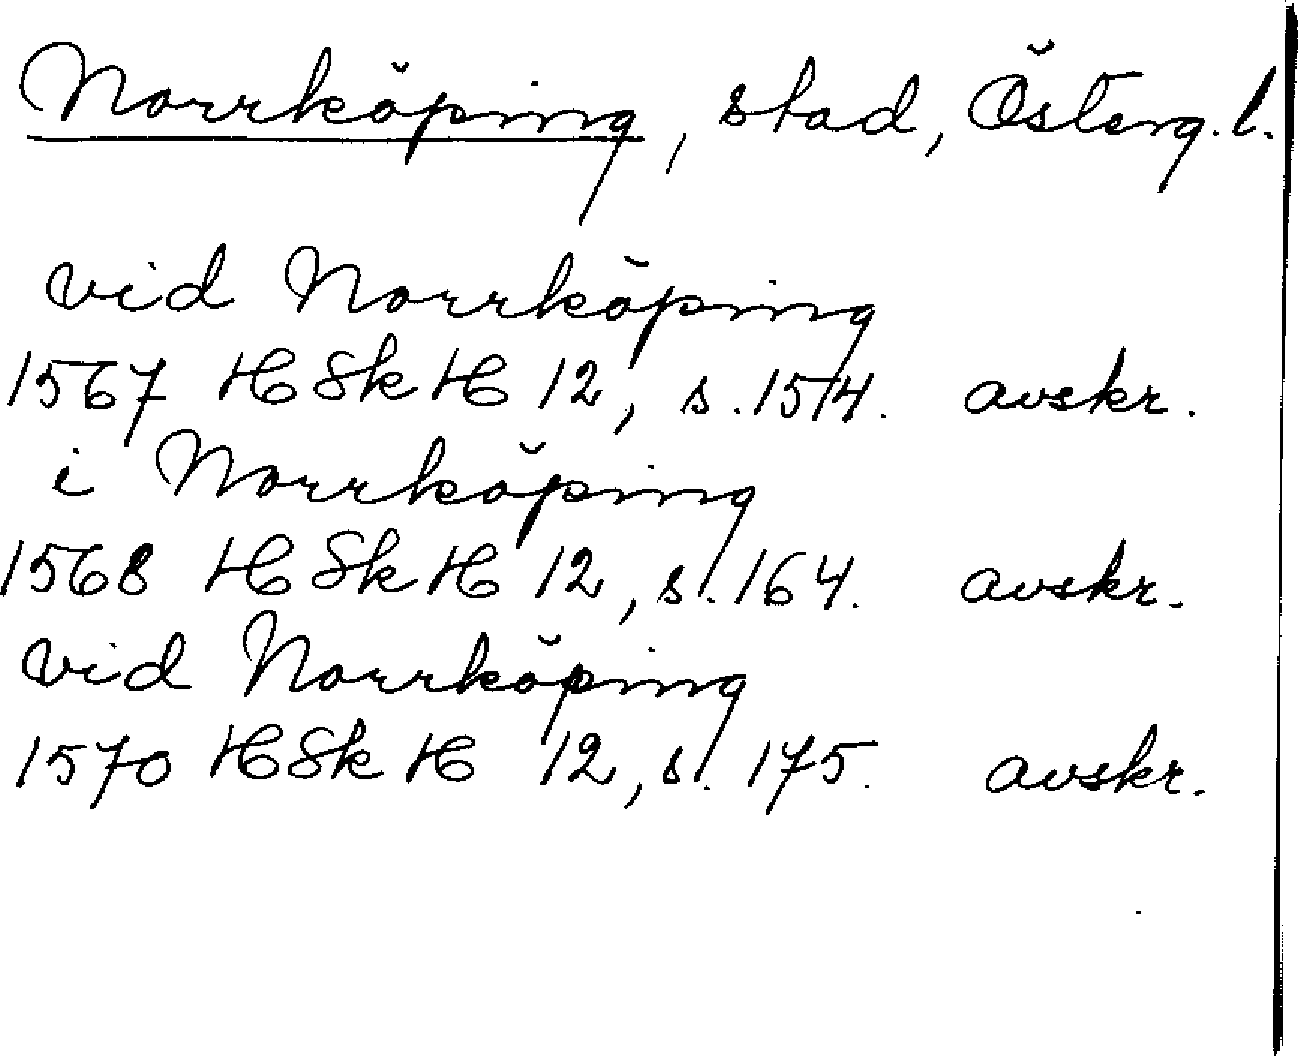 Norrköping, stad, Österg.l.
vid Norrköping
1567 HSkH 12, s. 154. avskr.
i Norrköping
1568 HSkH 12, s. 164. avskr.
vid Norrköping
1570 HSkH 12, s. 175. avskr.